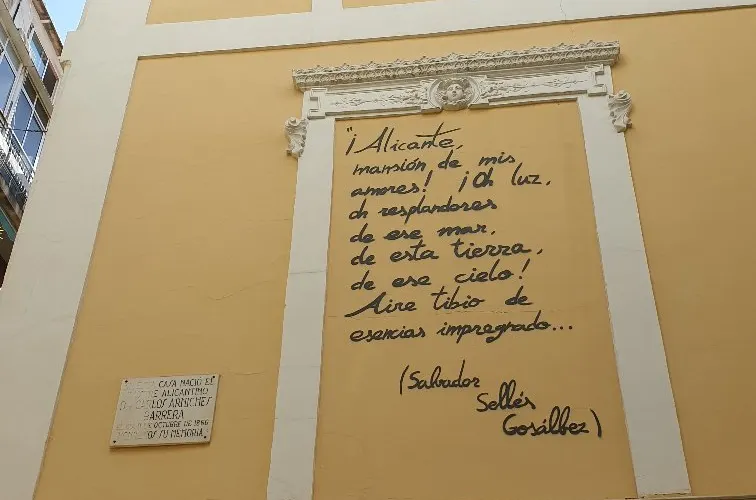 "¡Alicante,
mansión de mis
amores! ¡Oh luz,
oh resplandores
de ese mar,
de esta tierra,
de ese cielo!
Aire tibio de
esencias impregnado...
(Salvador
Sellés
Gosálbez)
CASA NACIÓ EL
ALICANTINO
CARLOS ARNICHES
BARRERA
OCTUBRE DE 1866
SU MEMORIA